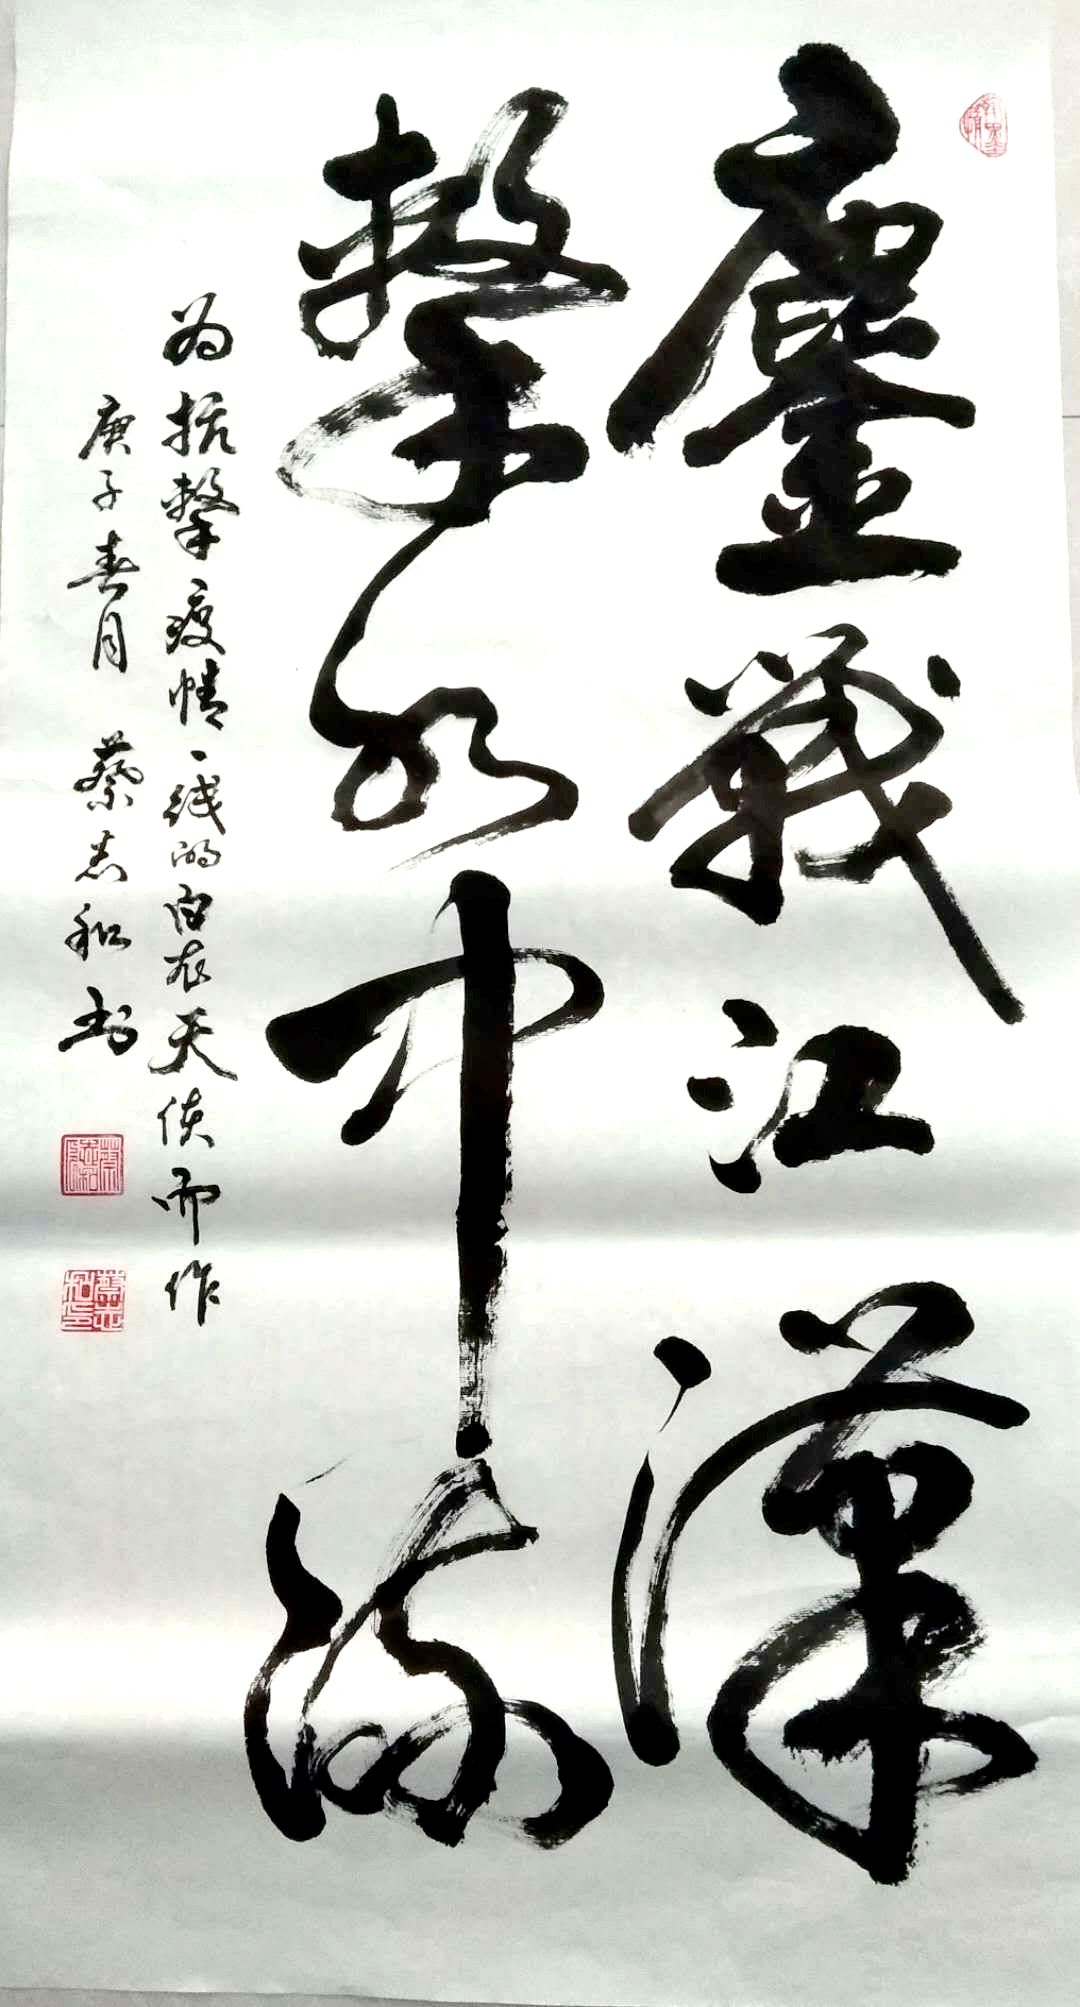 鏖戰江漢
擊水中流
为抗擊疫情一线的白衣天使而作
庚子春月 蔡志和书